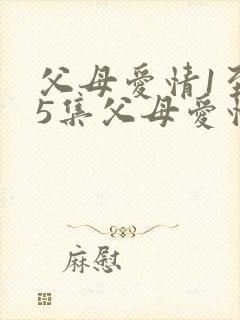 父母爱情1至
5集父母爱情
麻慰